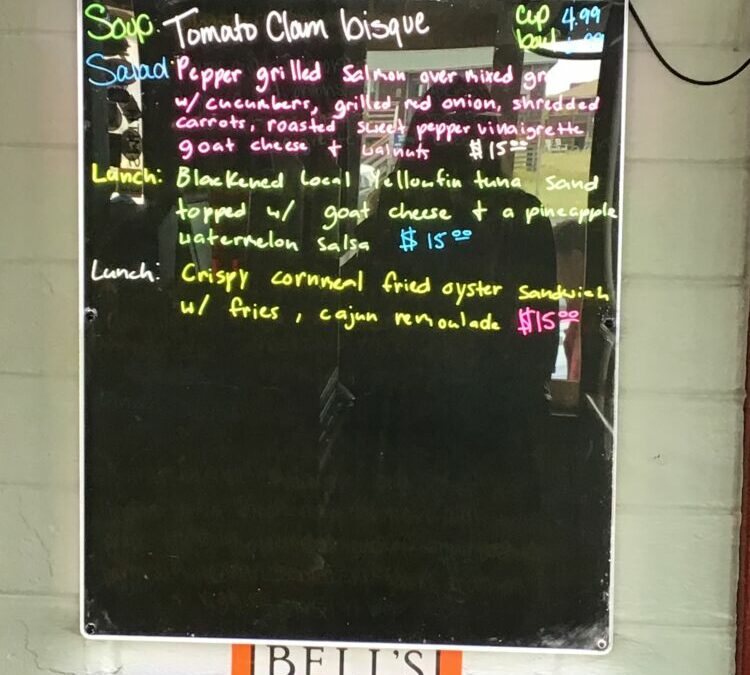 Soup. Tomato Clam bisque cup 4.99
bowl
Salad Pepper grilled Salmon over mixed
w/ cucumbers, grilled red onion, shredded
carrots, roasted sweet pepper vinaigrette
goat cheese + walnuts $15.00
Lunch: Blackened Local Yellowfin tuna Sand
topped w/ goat cheese + a pineapple
watermelon Salsa $15.00
Lunch: Crispy cornmeal fried oyster Sandwich
w/ fries, cajun remoulade $15.00
BELL'S